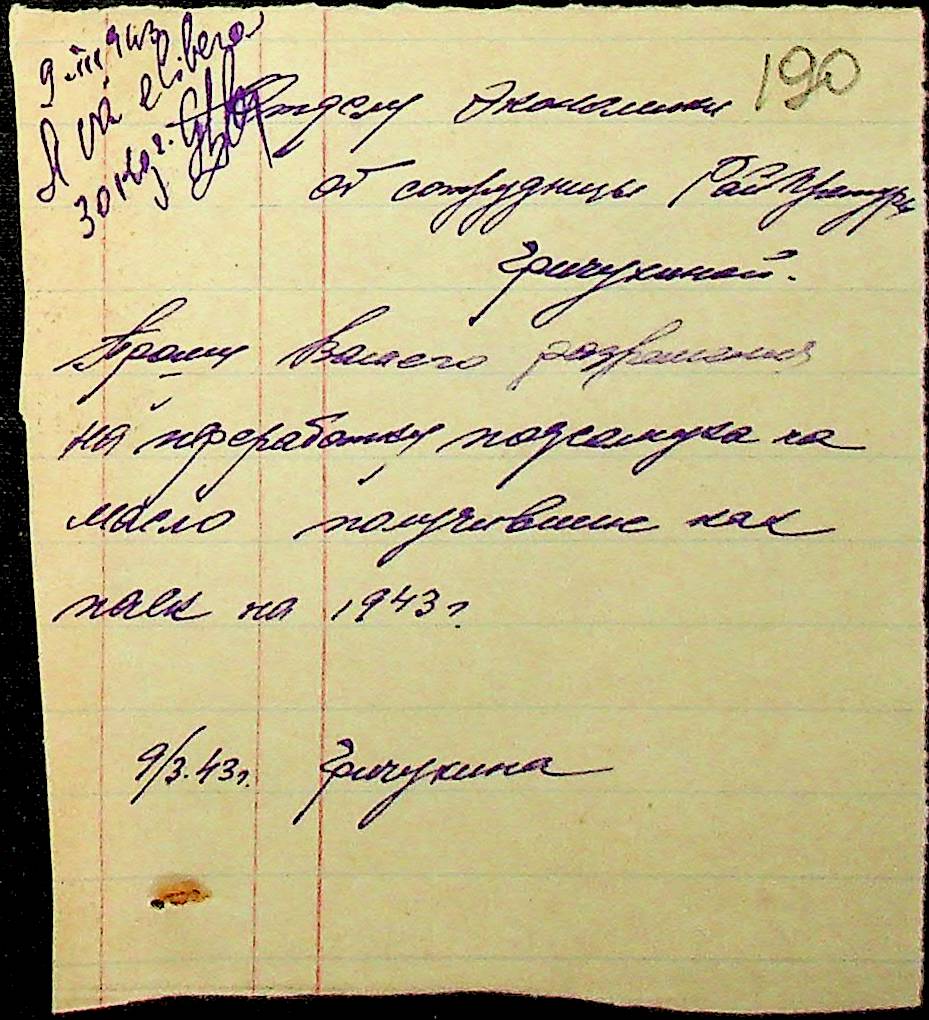 9.III.943
A vă elibera
30 кg.
190
Отделу Экономики
от сотрудницы Рай Претуры
Гричухиной.
Прошу Вашего разрешения
на переработку подсолнуха на
масло получившие как
паек на 1943 г.
9/3.43 г. Гричухина